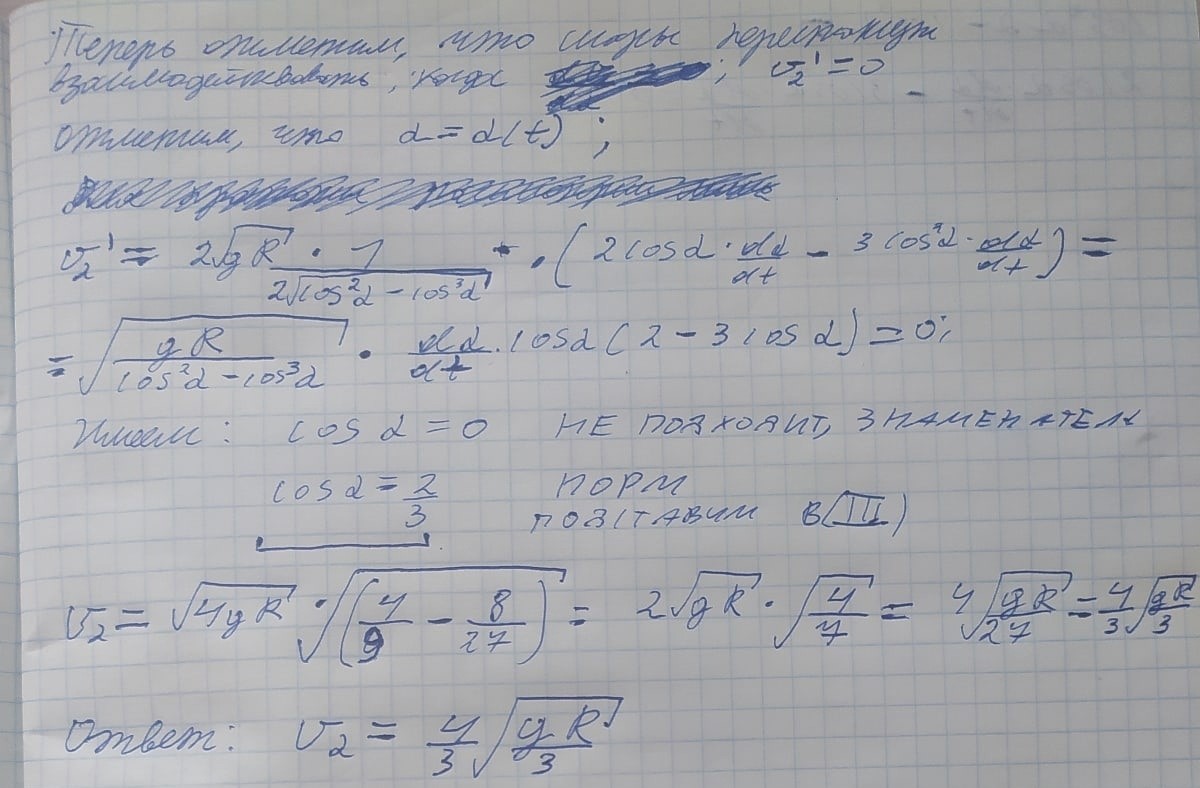 Теперь отметим, что шары перестанут
взаимодействовать, когда ; v₂' = 0
отметим, что α = α(t) ;
v₂' = 2√(gR) · 1/(2√(cos²α - cos³α)) · (2cosα · dα/dt - 3cos²α · dα/dt) =
= √(gR/(cos²α - cos³α)) · dα/dt · cosα(2 - 3cosα) = 0;
Имеем: cosα = 0 НЕ ПОДХОДИТ, ЗНАМЕНАТЕЛЬ
cosα = 2/3 НОРМ
ПОДСТАВИМ В(III)
v₂ = √(4gR) · √((4/9 - 8/27)) = 2√(gR) · √(4/7) = 4√(gR/27) = 4/3 √(gR/3)
Ответ: v₂ = 4/3 √(gR/3)